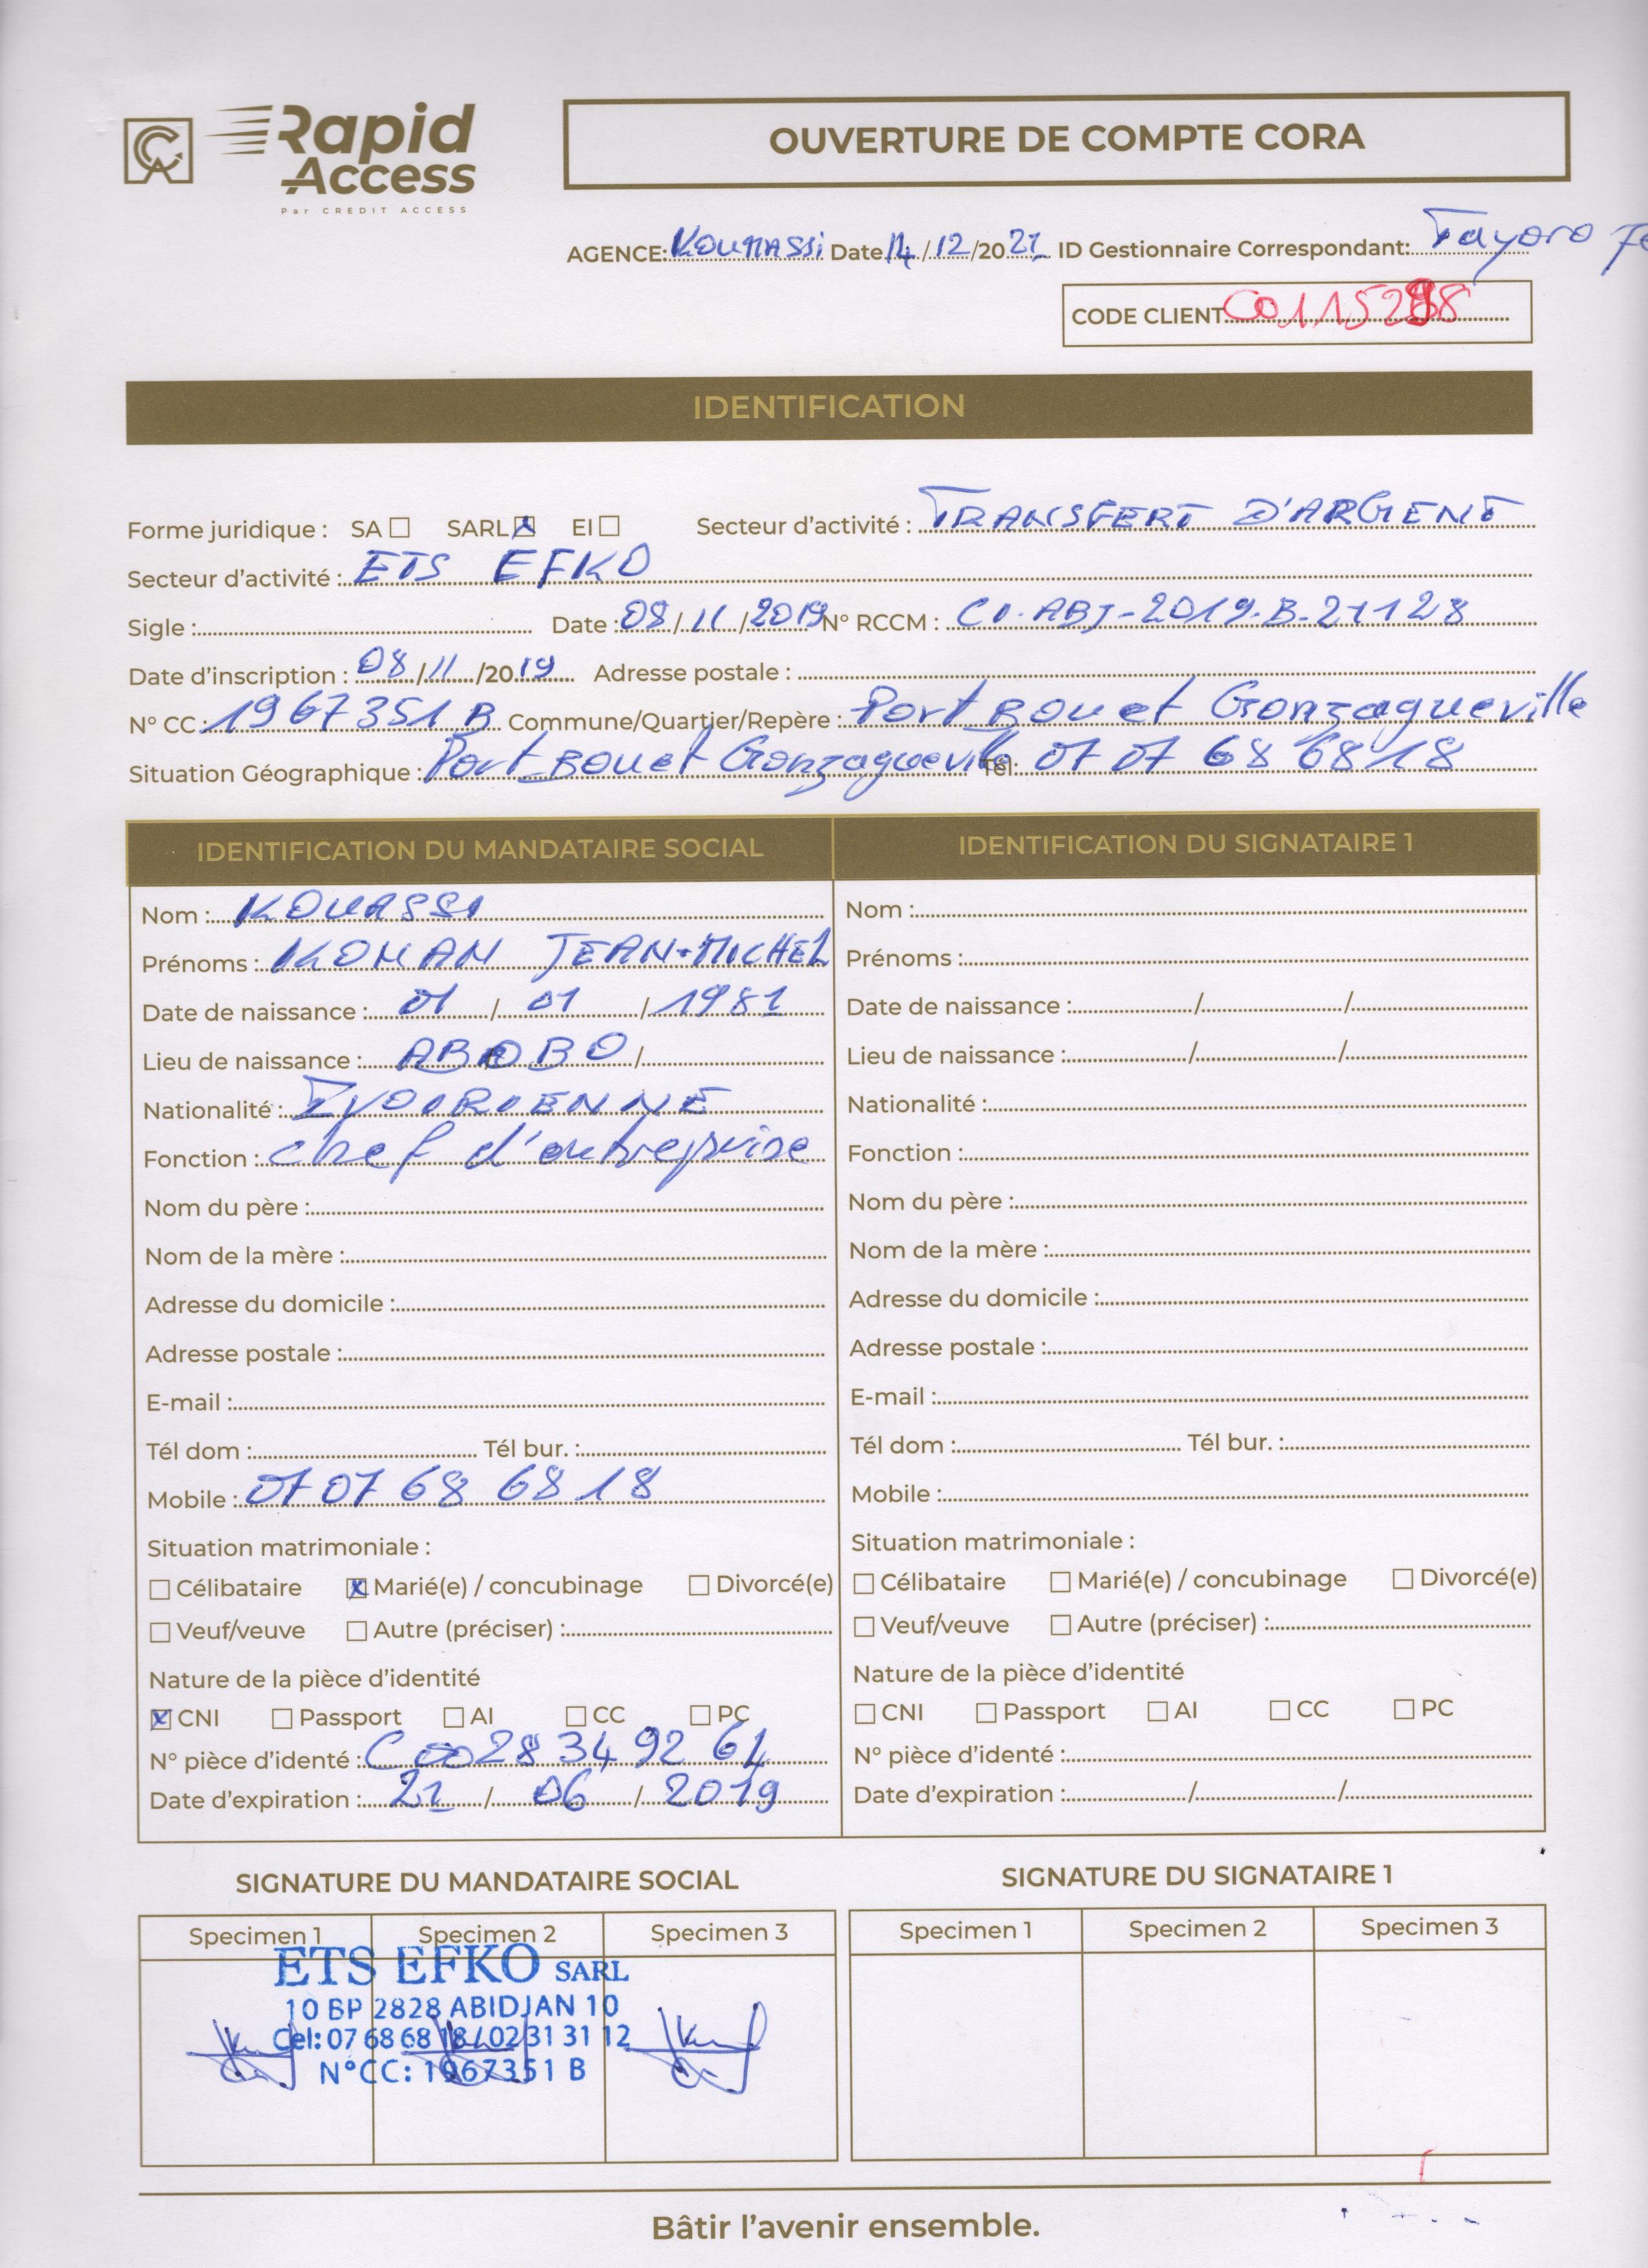 Rapid
Access
Par CREDIT ACCESS
OUVERTURE DE COMPTE CORA
AGENCE: KOUMASSI Date 14/12/2021 ID Gestionnaire Correspondant: Tayoro
CODE CLIENT C0115298
IDENTIFICATION
Forme juridique : SA SARL EI Secteur d'activité : TRANSFERT D'ARGENT
Secteur d'activité : ETS EFKO
Sigle : Date : 08/11/2019 N° RCCM : CI-ABJ-2019-B-27128
Date d'inscription : 08/11/2019 Adresse postale :
N° CC : 1967351 B Commune/Quartier/Repère : Port_Bouet Gonzagueville
Situation Géographique : Port_Bouet Gonzagueville Tél: 07 07 68 68 18
IDENTIFICATION DU MANDATAIRE SOCIAL
Nom : KOUASSI
Prénoms : KONAN JEAN-MICHEL
Date de naissance : 01 / 01 / 1981
Lieu de naissance : ABOBO /
Nationalité : IVOIRIENNE
Fonction : chef d'entreprise
Nom du père :
Nom de la mère :
Adresse du domicile :
Adresse postale :
E-mail :
Tél dom : Tél bur. :
Mobile : 07 07 68 68 18
Situation matrimoniale :
Célibataire Marié(e) / concubinage Divorcé(e)
Veuf/veuve Autre (préciser) :
Nature de la pièce d'identité
CNI Passport AI CC PC
N° pièce d'identé : C 0028 34 92 61
Date d'expiration : 21 / 06 / 2019
IDENTIFICATION DU SIGNATAIRE 1
Nom :
Prénoms :
Date de naissance : / /
Lieu de naissance : / /
Nationalité :
Fonction :
Nom du père :
Nom de la mère :
Adresse du domicile :
Adresse postale :
E-mail :
Tél dom : Tél bur. :
Mobile :
Situation matrimoniale :
Célibataire Marié(e) / concubinage Divorcé(e)
Veuf/veuve Autre (préciser) :
Nature de la pièce d'identité
CNI Passport AI CC PC
N° pièce d'identé :
Date d'expiration : / /
SIGNATURE DU MANDATAIRE SOCIAL
Specimen 1 Specimen 2 Specimen 3
ETS EFKO SARL
10 BP 2828 ABIDJAN 10
Cel: 07 68 68 18 / 02 31 31 12
N°CC: 1967351 B
SIGNATURE DU SIGNATAIRE 1
Specimen 1 Specimen 2 Specimen 3
Bâtir l'avenir ensemble.